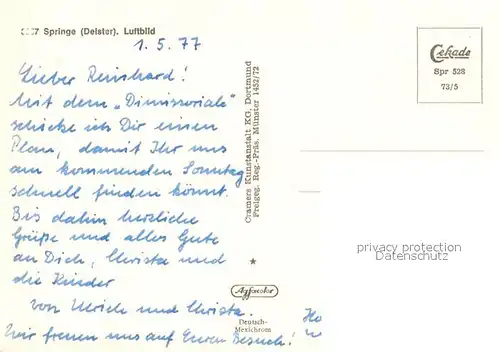 Springe (Deister). Luftbild
1. 5. 77
Lieber Reinhard!
Mit dem „Dimissoriale"
schicke ich Dir einen
Plan, damit Ihr uns
am kommenden Sonntag
schnell finden könnt.
Bis dahin herzliche
Grüße und alles Gute
an Dich, Christa und
die Kinder
von Ulrich und Christa.
Wir freuen uns auf Euren Besuch!
Cramers Kunstanstalt KG, Dortmund
Freigeg. Reg.-Präs. Münster 1452/72
Agfacolor
Deutsch-
Mexichrom
Cekade
Spr 528
73/5
privacy protection
Datenschutz